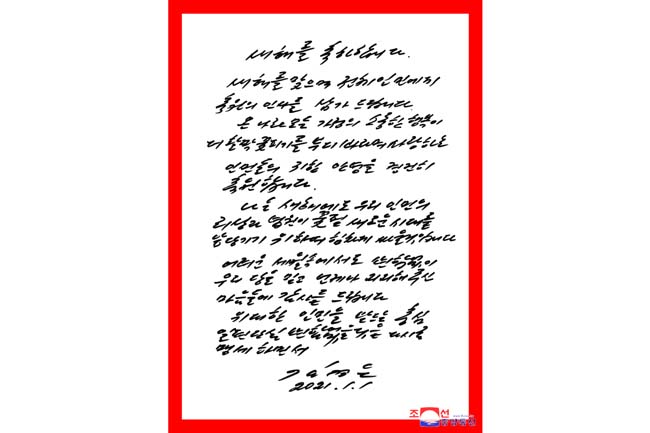 새해를 축하합니다.
새해를 맞으며 전체 인민에게
축원의 인사를 삼가 드립니다
온 나라 모든 가정의 소중한 행복이
더 활짝 꽃피기를 부디 바라며 사랑하는
인민들의 귀한 안녕을 경건히
축원합니다.
나는 새해에도 우리 인민의
리상과 념원이 꽃필 새로운 시대를
앞당기기 위하여 힘차게 싸울것입니다
어려운 세월속에서도 변함없이
우리 당을 믿고 언제나 지지해주신
마음들에 감사를 드립니다
위대한 인민을 받드는 충심
일편단심 변함없을것을 다시금
맹세하면서
김정은
2021.1.1
조선
중앙통신